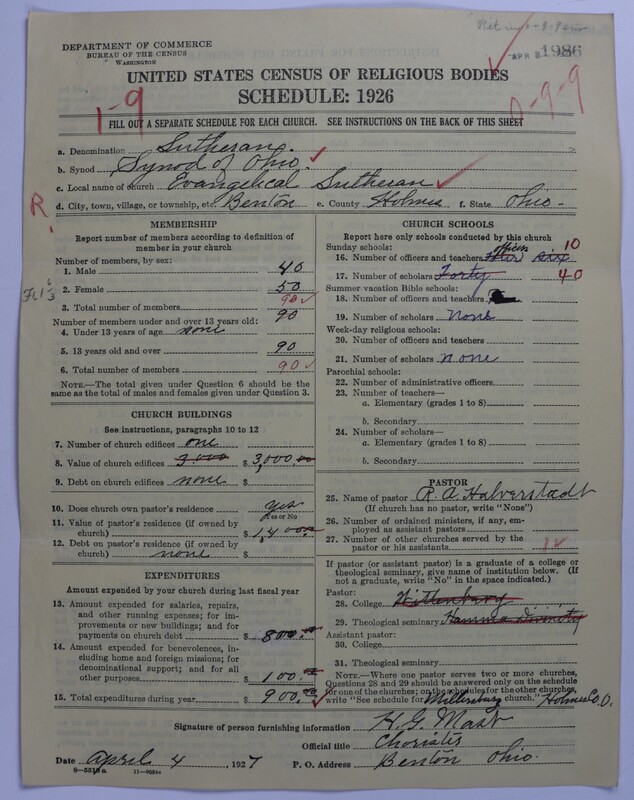 DEPARTMENT OF COMMERCE
BUREAU OF THE CENSUS
WASHINGTON
APR 1986
UNITED STATES CENSUS OF RELIGIOUS BODIES
SCHEDULE: 1926
1-9
0-9-9
FILL OUT A SEPARATE SCHEDULE FOR EACH CHURCH. SEE INSTRUCTIONS ON THE BACK OF THIS SHEET
a. Denomination Lutheran.
b. Synod Synod of Ohio.
c. Local name of church Evangelical Lutheran
d. City, town, village, or township, etc. Benton e. County Holmes f. State Ohio-
R.
MEMBERSHIP
Report number of members according to definition of
member in your church
Number of members, by sex:
1. Male 40
2. Female 50
3. Total number of members 90
90
Number of members under and over 13 years old:
4. Under 13 years of age none
5. 13 years old and over 90
6. Total number of members 90
NOTE.—The total given under Question 6 should be
same as the total of males and females given under Question 3.
CHURCH BUILDINGS
See instructions, paragraphs 10 to 12
7. Number of church edifices one
8. Value of church edifices 3,000 $ 3,000.00
9. Debt on church edifices none $
10. Does church own pastor's residence? yes
(Yes or No)
11. Value of pastor's residence (if owned by
church) $ 1,400.00
12. Debt on pastor's residence (if owned by
church) none $
EXPENDITURES
Amount expended by your church during last fiscal year
13. Amount expended for salaries, repairs,
and other running expenses; for im-
provements or new buildings; and for
payments on church debt $ 800.00
14. Amount expended for benevolences, in-
cluding home and foreign missions; for
denominational support; and for all
other purposes $ 100.00
15. Total expenditures during year $ 900.00
CHURCH SCHOOLS
Report here only schools conducted by this church
Sunday schools:
16. Number of officers and teachers officers Four six 10
17. Number of scholars Forty 40
Summer vacation Bible schools:
18. Number of officers and teachers
19. Number of scholars None
Week-day religious schools:
20. Number of officers and teachers
21. Number of scholars none
Parochial schools:
22. Number of administrative officers
23. Number of teachers—
a. Elementary (grades 1 to 8)
b. Secondary
24. Number of scholars—
a. Elementary (grades 1 to 8)
b. Secondary
PASTOR
25. Name of pastor R. A. Halverstadt
(If church has no pastor, write "None")
26. Number of ordained ministers, if any, em-
ployed as assistant pastors
27. Number of other churches served by the
pastor or his assistants
If pastor (or assistant pastor) is a graduate of a college or
theological seminary, give name of institution below. (If
not a graduate, write "No" in the space indicated.)
Pastor:
28. College Wittenburg
29. Theological seminary Hamma Divinity
Assistant pastor:
30. College
31. Theological seminary
NOTE.—Where one pastor serves two or more churches,
Questions 28 and 29 should be answered only on the schedule
for one of the churches; on the schedules for the other churches,
write "See schedule for Millersburg church." Holmes Co, O.
Signature of person furnishing information H. G. Mast
Official title Chorister
Date April 4, 1927 P. O. Address Benton Ohio.